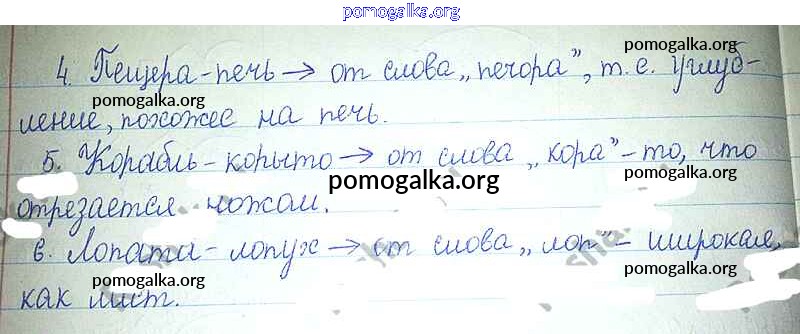 pomogalka.org
4. Пещера - печь → от слова „печора”, т. е. углуб-
pomogalka.org
pomogalka.org
ление, похожее на печь.
5. Корабль - корыто → от слова „кора” - то, что
pomogalka.org
отрезается ножом.
pomogalka.org
в. Лопата - лопух → от слова „лоп” - широкая,
pomogalka.org
pomogalka.org
как лист.
pomogalka.org